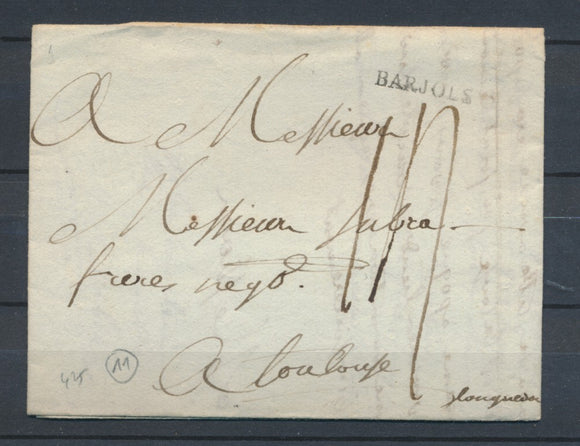 BARJOLS
A Messieurs
Messieurs Subra
freres nego.
A Toulouse
Longuedoc
425 11